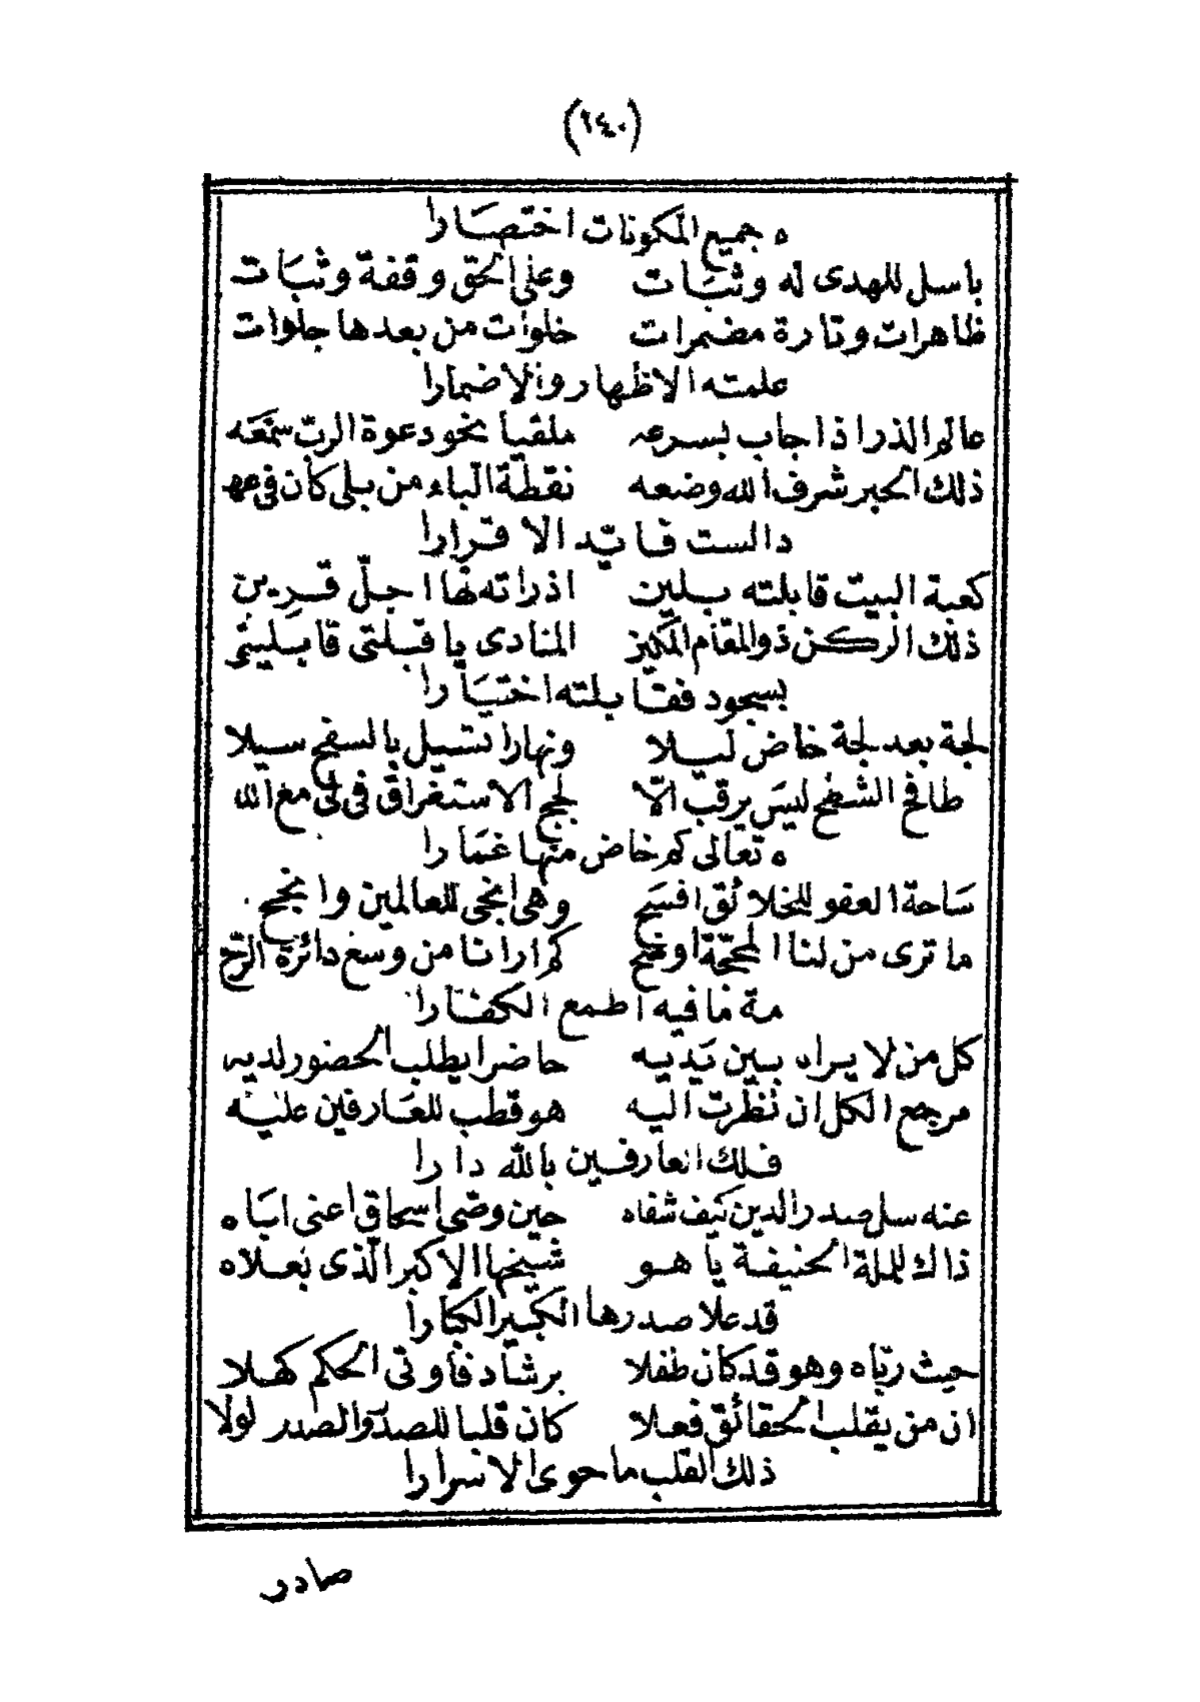 (١٤٠)
ه جميع المكونات اختصارا
باسل للهدى له وثبات وعلى الحق وقفة وثبات
ظاهرات وتارة مضمرات خلوات من بعدها جلوات
علمته الاظهار والاضمارا
عالم الذر اذ اجاب بسرعه ملقيا نحو دعوة الرب سمعه
ذلك الحبر شرف الله وضعه نقطة الباء من بلى كان فى عهـ
د الست فايد الاقرارا
كعبة البيت قابلته بلين اذ راته لها اجل قرين
ذلك الركن ذو المقام المكين المنادى يا قبلتى قابلينى
بسجود فقابلته اختيارا
لجة بعد لجة خاض ليلا ونهارا تسيل بالسفح سيلا
طافح الشطح ليس يرقب الّا لجج الاستغراق فى لى مع الله
ه تعالى كم خاض منها غمارا
ساحة العفو للخلائق افسح وهى انجى للعالمين وانجح
ما ترى من لنا المحجة اوضح كم ارانا من وسع دائرة الرحـ
مة ما فيه اطمع الكفارا
كل من لا يراه بين يديه حاضرا يطلب الحضور لديه
مرجع الكل ان نظرت اليه هو قطب للعارفين عليه
فلك العارفين بالله دارا
عنه سل صدر الدين كيف شفاه حين وصى اسحاق اعنى اباه
ذاك للملة الحنيفة يا هو شيخها الاكبر الذى بعلاه
قد علا صدرها الكبير الكبارا
حيث رباه وهو قد كان طفلا برشاد فاوتى الحكم كهلا
ان من يقلب الحقائق فعلا كان قلبا للصدر والصدر لولا
ذلك القلب ما حوى الاسرارا
صادر